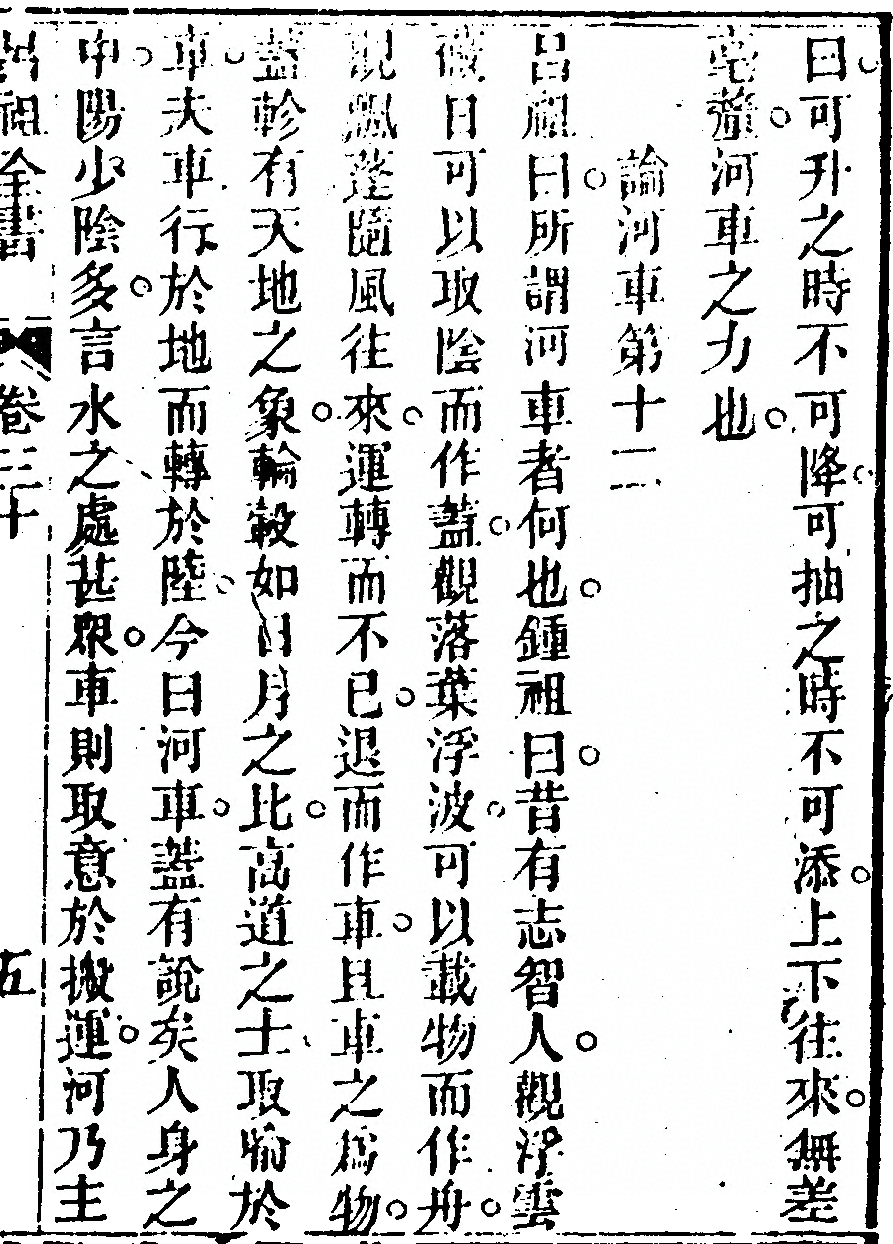 曰可升之時不可降可抽之時不可添上下往來無差
毫釐河車之力也
論河車第十二
呂祖曰所謂河車者何也鍾祖曰昔有志智人觀浮雲
蔽日可以取陰而作蓋觀落葉浮波可以載物而作舟
觀飄蓬隨風往來運轉而不已退而作車且車之爲物
蓋軫有天地之象輪轂如日月之比高道之士取喻於
車夫車行於地而轉於陸今曰河車蓋有說矣人身之
中陽少陰多言水之處甚眾車則取意於搬運河乃主
呂祖全書 卷三十 五